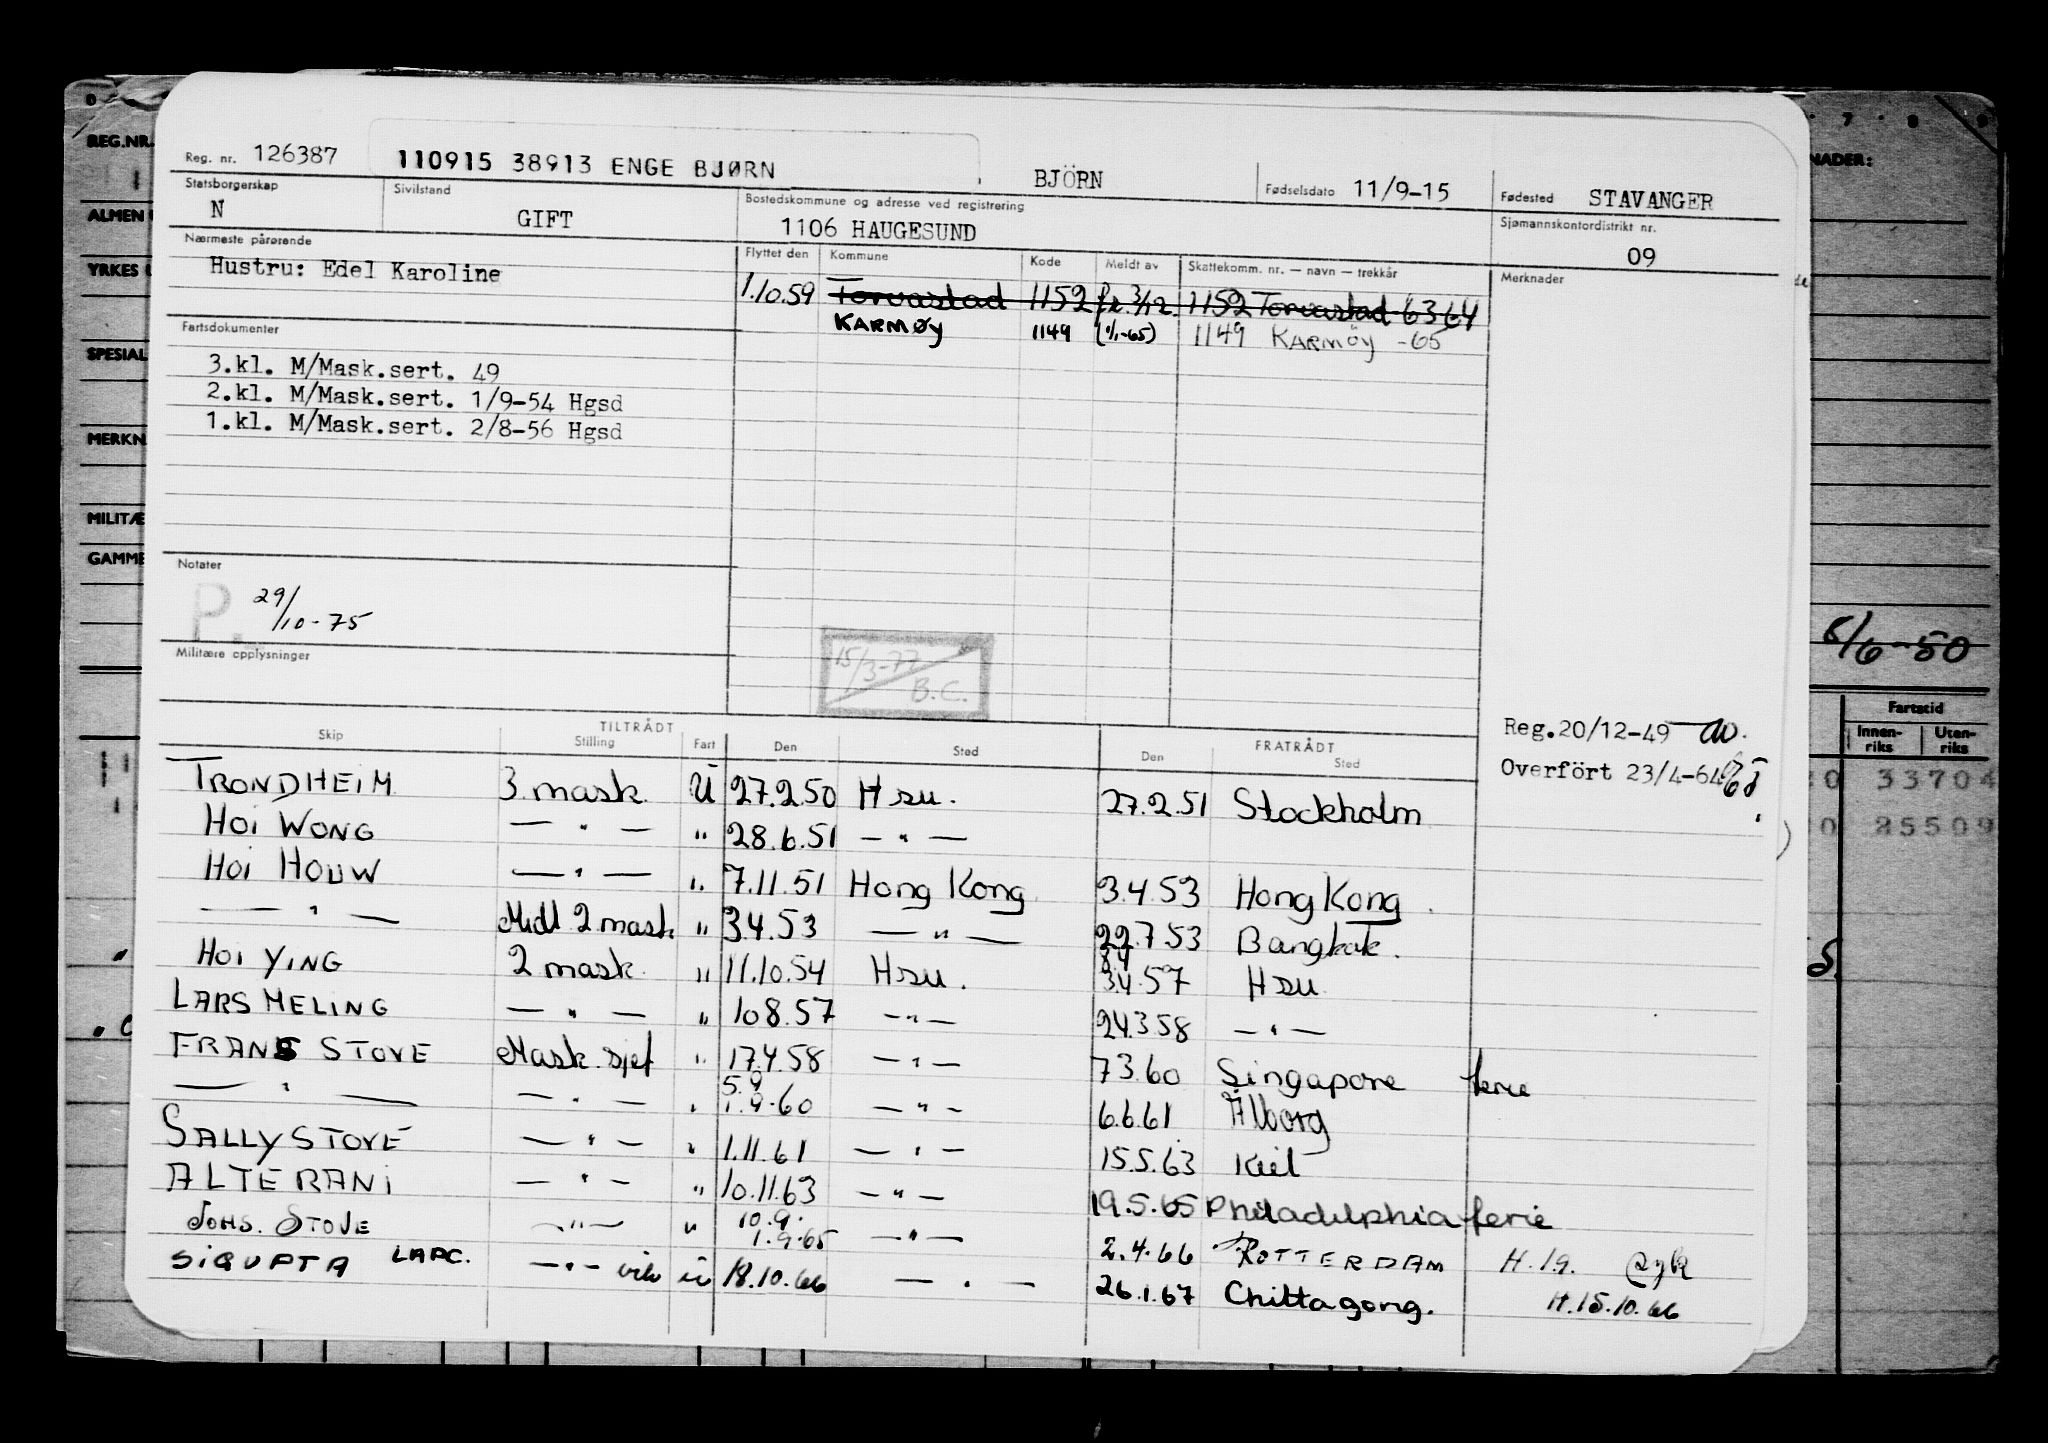 Reg. nr. 126387 110915 38913 ENGE BJØRN BJÖRN Fødselsdato 11/9-15 Fødested STAVANGER
Statsborgerskap N Sivilstand GIFT Bostedskommune og adresse ved registrering 1106 HAUGESUND Sjømannskontordistrikt nr. 09
Nærmeste pårørende Flyttet den Kommune Kode Meldt av Skattekomm. nr. — navn — trekkår Merknader
Hustru: Edel Karoline
1.10.59 Torvastad 1152 fr. 3/12. 1152 Torvastad 63 64
KARMØY 1149 (1/1-65) 1149 KARMØY -65
Fartsdokumenter
3.kl. M/Mask.sert. 49
2.kl. M/Mask.sert. 1/9-54 Hgsd
1.kl. M/Mask.sert. 2/8-56 Hgsd
Notater
P. 29/10-75
Militære opplysninger
15/3-77 B.C.
Reg.20/12-49
Overfört 23/4-64
TILTRÅDT FRATRÅDT
Skip Stilling Fart Den Sted Den Sted
TRONDHEIM 3 mask. U 27.2.50 Hsu. 27.2.51 Stockholm
HOI WONG — " — " 28.6.51 — " —
HOI HOUW — " — " 7.11.51 Hong Kong 3.4.53 Hong Kong.
— " — Midl 2 mask " 3.4.53 — " — 22.7.53 Bangkok.
HOI YING 2 mask. " 11.10.54 Hsu. 3.4.57 Hsu
LARS MELING — " — " 10.8.57 — " — 24.3.58 — " —
FRANS STOVE Mask. sjef " 17.4.58 — " — 7.3.60 Singapore ferie
— " — — " — " 5.9 1.9.60 — " — 6.6.61 Ålborg
SALLY STOVE — " — " 1.11.61 — " — 15.5.63 Kiel
ALTERANI — " — " 10.11.63 — " — 19.5.65 Philadelphia ferie
JOHS. STOVE — " — " 10.9. 1.9.65 — " — 2.4.66 ROTTERDAM H. 19. syk
SIGUPTA — " — vik u 18.10.66 — " — 26.1.67 Chittagong. H.15.10.66
REG.NR.
MERKN
GAMME
6/6-50
Fartstid
Innen-riks Uten-riks
33704
25509